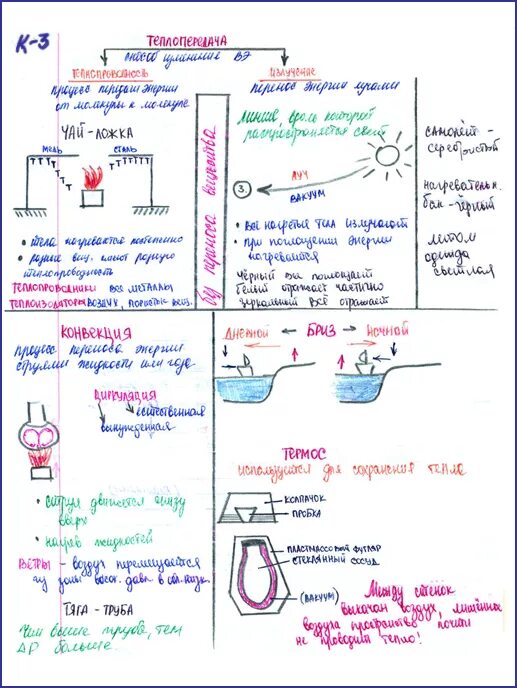 К-3
ТЕПЛОПЕРЕДАЧА
способ изменения ВЭ
ТЕПЛОПРОВОДНОСТЬ
процесс передачи энергии
от молекулы к молекуле
ЧАЙ-ЛОЖКА
медь сталь
• тела нагреваются постепенно
• разные вещ. имеют разную
теплопроводность
ТЕПЛОПРОВОДНИКИ ВСЕ МЕТАЛЛЫ
ТЕПЛОИЗОЛЯТОРЫ ВОЗДУХ, ПОРИСТЫЕ ВЕЩ.
без переноса вещества
ИЗЛУЧЕНИЕ
перенос энергии лучами
линия, вдоль которой
распространяется свет
З.
ЛУЧ
ВАКУУМ
• все нагретые тела излучают
• при поглощении энергии
нагреваются
чёрный все поглощает
белый отражает частично
зеркальный всё отражает
самолёт -
серебристый
нагревательн.
бак - чёрный
летом
одежда
светлая
КОНВЕКЦИЯ
процесс переноса энергии
струями жидкости или газа
ЦИРКУЛЯЦИЯ
естественная
вынужденная
• струя движется снизу
вверх
• нагрев жидкостей
ВЕТРЫ - воздух перемещается
из зоны высок. давл. в обл. низк.
ТЯГА - ТРУБА
Чем выше труба, тем
ΔР больше.
ДНЕВНОЙ ← БРИЗ → НОЧНОЙ
ТЕРМОС
используется для сохранения тепла
КОЛПАЧОК
ПРОБКА
ПЛАСТМАССОВЫЙ ФУТЛЯР
СТЕКЛЯННЫЙ СОСУД
(ВАКУУМ)
Между стенок
выкачан воздух, лишённое
воздуха пространство почти
не проводит тепло!